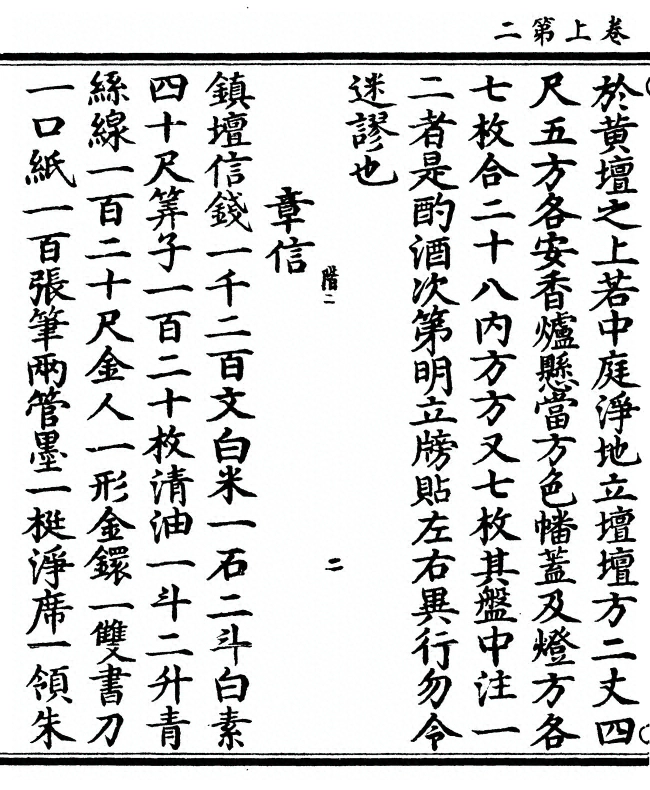 卷上第二
於黃壇之上若中庭淨地立壇壇方二丈四
尺五方各安香爐懸當方色幡蓋及燈方各
七枚合二十八內方方又七枚其盤中注一
二者是酌酒次第明立牓貼左右異行勿令
迷謬也
階二
二
章信
鎮壇信錢一千二百文白米一石二斗白素
四十尺筭子一百二十枚清油一斗二升青
絲線一百二十尺金人一形金鐶一雙書刀
一口紙一百張筆兩管墨一梃淨席一領朱